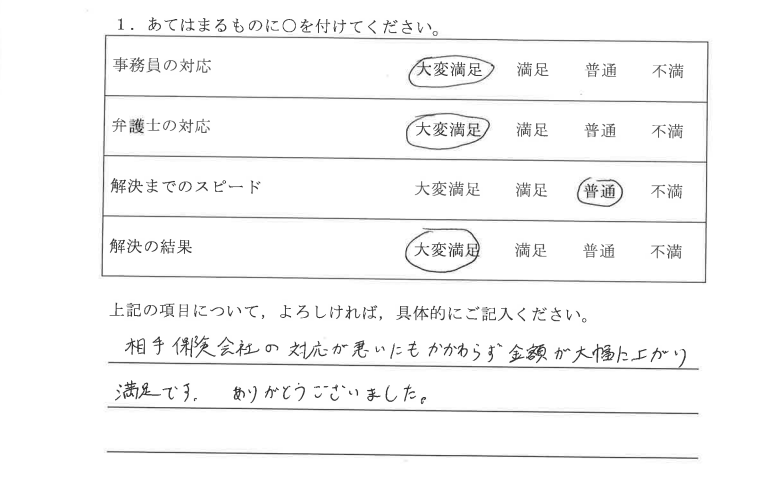 1．あてはまるものに○を付けてください。
事務員の対応 大変満足 満足 普通 不満
弁護士の対応 大変満足 満足 普通 不満
解決までのスピード 大変満足 満足 普通 不満
解決の結果 大変満足 満足 普通 不満
上記の項目について，よろしければ，具体的にご記入ください。
相手保険会社の対応が悪いにもかかわらず金額が大幅に上がり
満足です。 ありがとうございました。